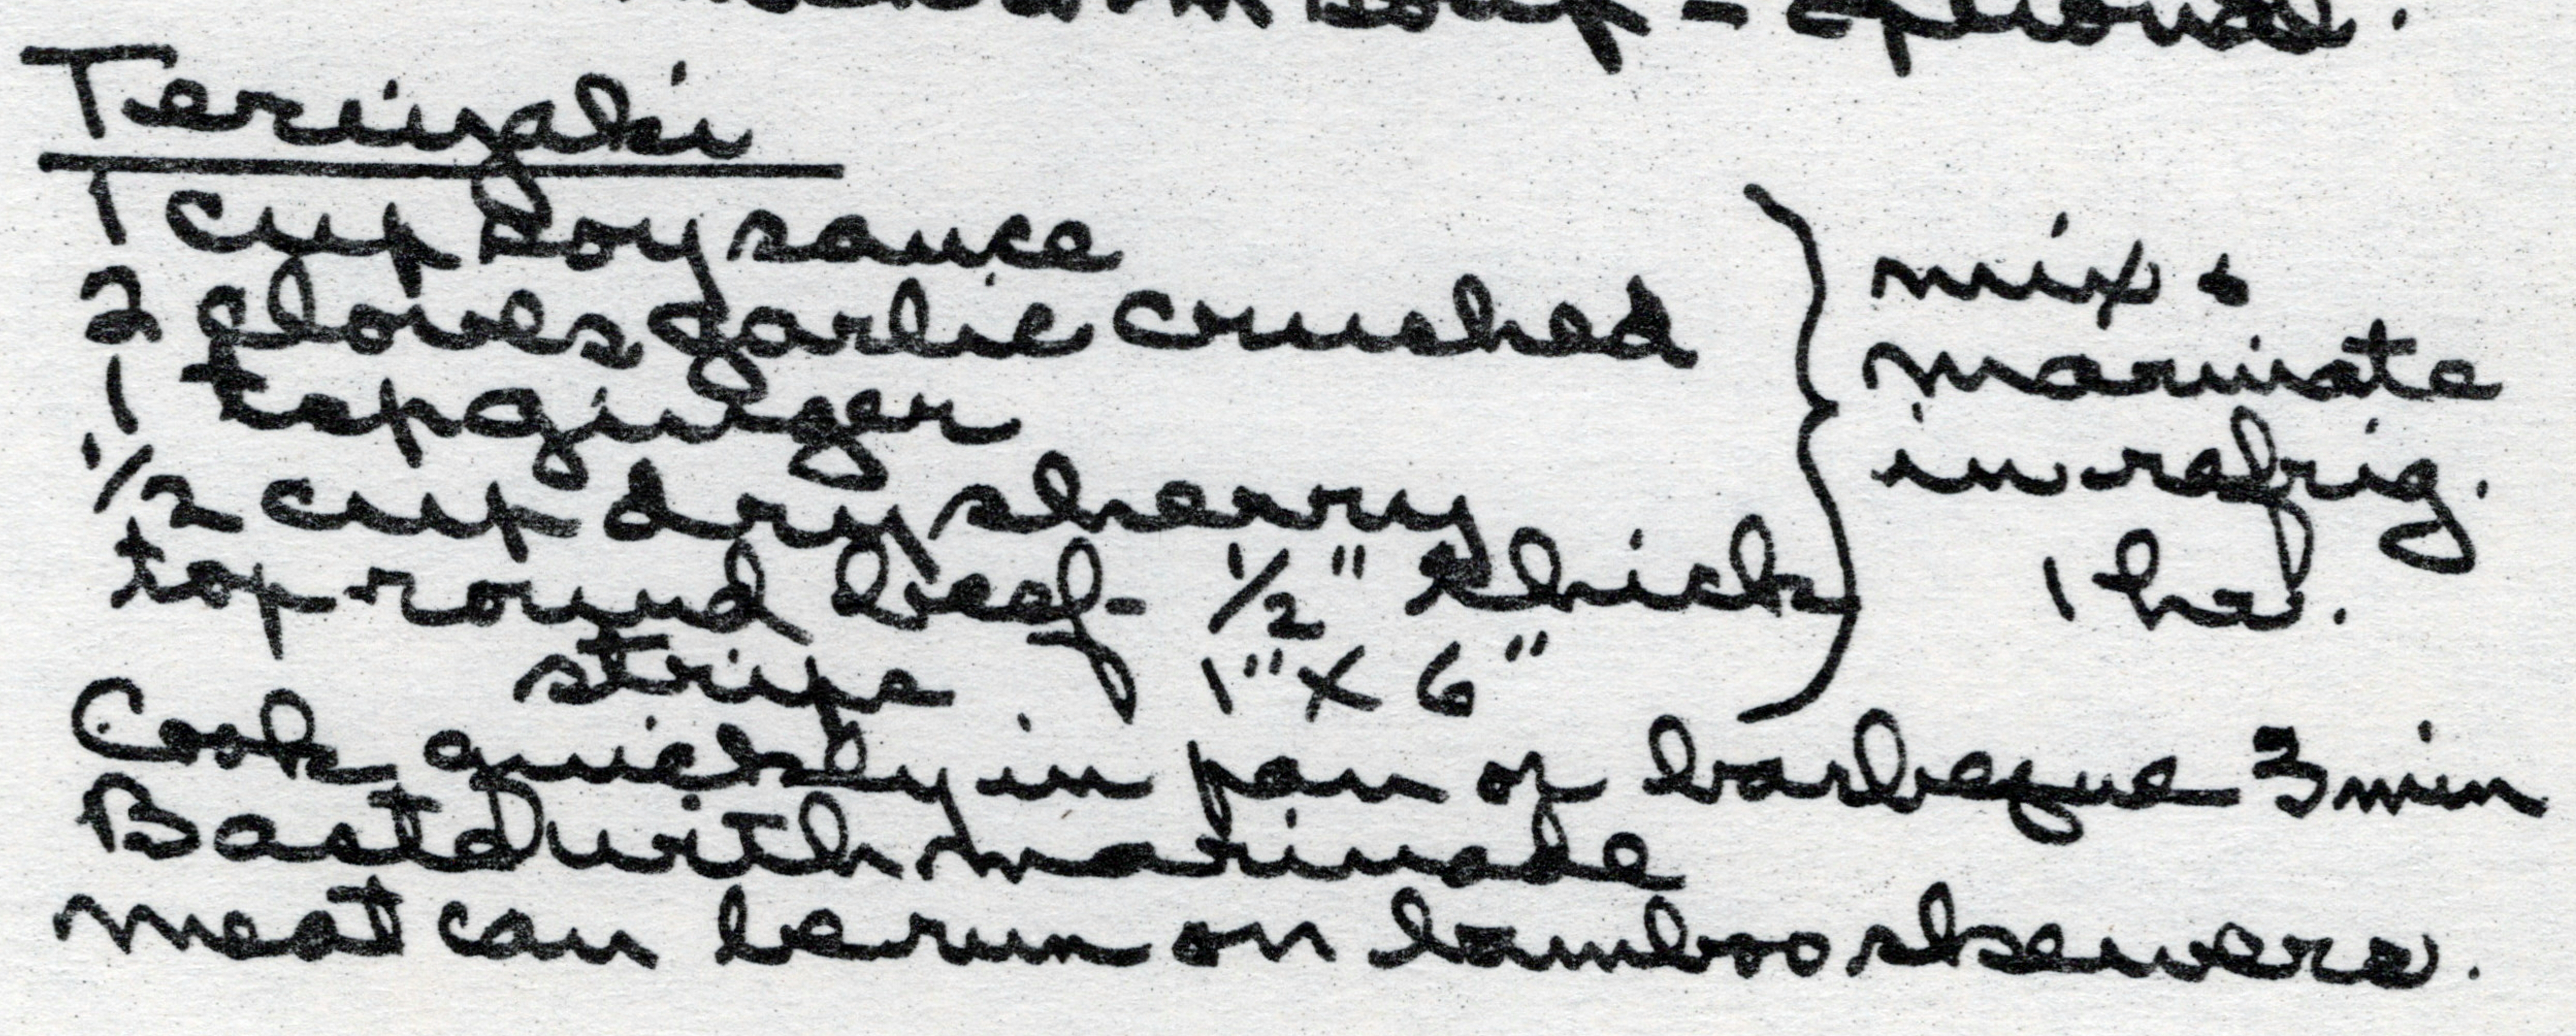 Soup - optional.
Teriyaki
1 cup soy sauce
2 cloves garlic crushed
1 tsp ginger
1/2 cup dry sherry
top round beef - 1/2" thick
strips 1" x 6"
mix &
marinate
in refrig.
1 hr.
Cook quickly in pan or barbeque 3 min
Baste with marinade
meat can be run on bamboo skewers.